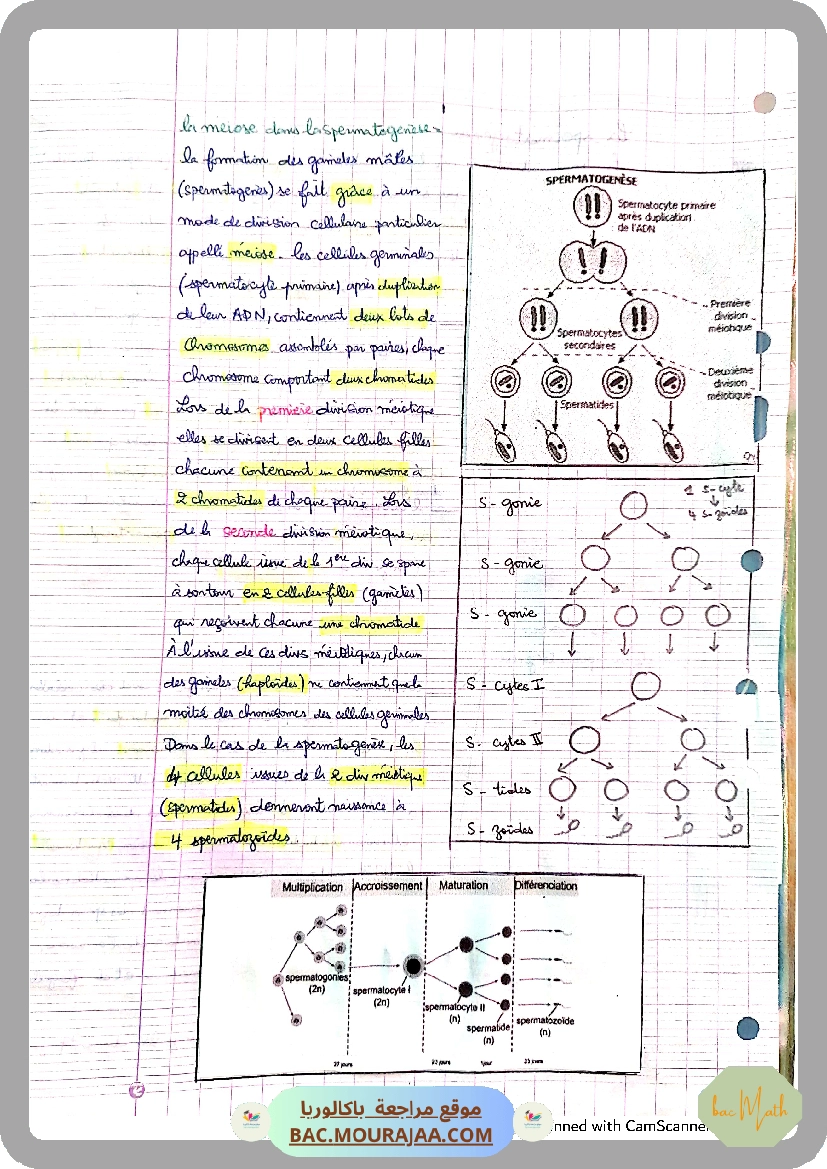 la meiose dans la spermatogenèse =
la formation des gametes mâles
(spermatogenès) se fait grâce à un
mode de division cellulaire particulier
appellé meiose. les cellules germinales
(spermatocyte primaire) après duplication
de leur ADN, contiennent deux lots de
chromosomes assemblés par paires, chaque
chromosome comportant deux chromatides
Lors de la première division méiotique
elles se divisent en deux cellules filles
chacune contenant un chromosome à
2 chromatides de chaque paire. Lors
de la seconde division méiotique,
chaque cellule issue de la 1ere div se
à son tour en 2 cellules-filles (gamètes)
qui reçoivent chacune une chromatide
À l'issue de ces divs méiotiques, chacun
des gametes (haploïdes) ne contiennent que la
moitié des chromosomes des cellules germinales
Dans le cas de la spermatogenèse, les
4 cellules issues de la 2 div méiotique
(spermatides) donneront naissance à
4 spermatozoïdes.
SPERMATOGENÈSE
Spermatocyte primaire
après duplication
de l'ADN
Première
division
méiotique
Spermatocytes
secondaires
Deuxième
division
méiotique
Spermatides
S - gonie
1 S - cyte
4 S-zoïdes
S - gonie
S - gonie
S - cytes I
S - cytes II
S - tides
S - zoïdes
Multiplication Accroissement Maturation Différenciation
spermatogonies
(2n)
spermatocyte I
(2n)
spermatocyte II
(n)
spermatide
(n)
spermatozoïde
(n)
27 jours
موقع مراجعة باكالوريا
BAC.MOURAJAA.COM
nned with CamScanner
bac Math